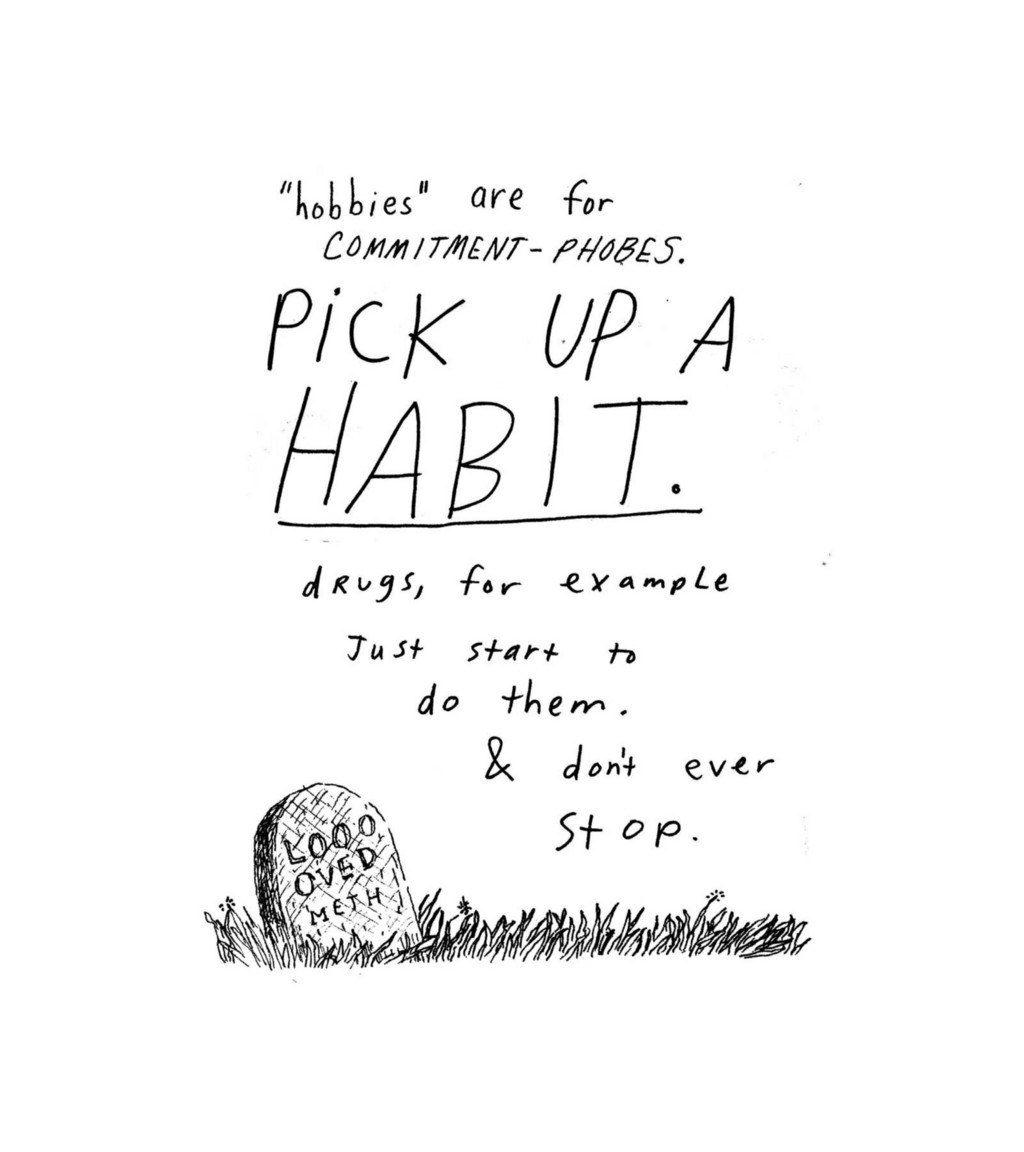 "hobbies" are for
COMMITMENT-PHOBES.
PiCK UP A
HABIT.
dRugs, for example
Just start to
do them.
& don't ever
stop.
LOOO
OVED
METH